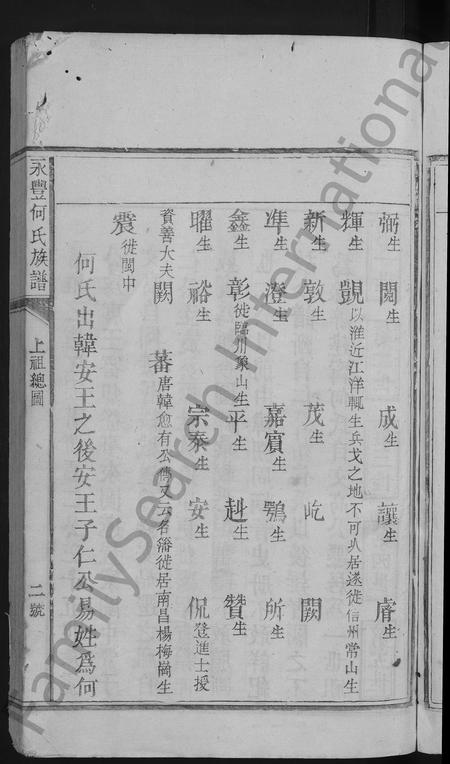 弼生 閱生 成生 讓生 膺生
輝生 覬以淮近江洋輒生兵戈之地不可久居遂徙信州常山生
新生 敦生 茂生 屹 闕
準生 澄生 嘉賓生 鶚生 所生
鑫生 彰徙臨川象山生 平生 赳生 贊生
曜生 裕生 宗泰生 安生 侃登進士授
資善大夫 闕 蕃唐韓愈有公傳又云名潘徙居南昌楊梅崗生
震徙閩中
何氏出韓安王之後安王子仁公易姓為何
永豐何氏族譜 上祖總圖 二號
FamilySearch International